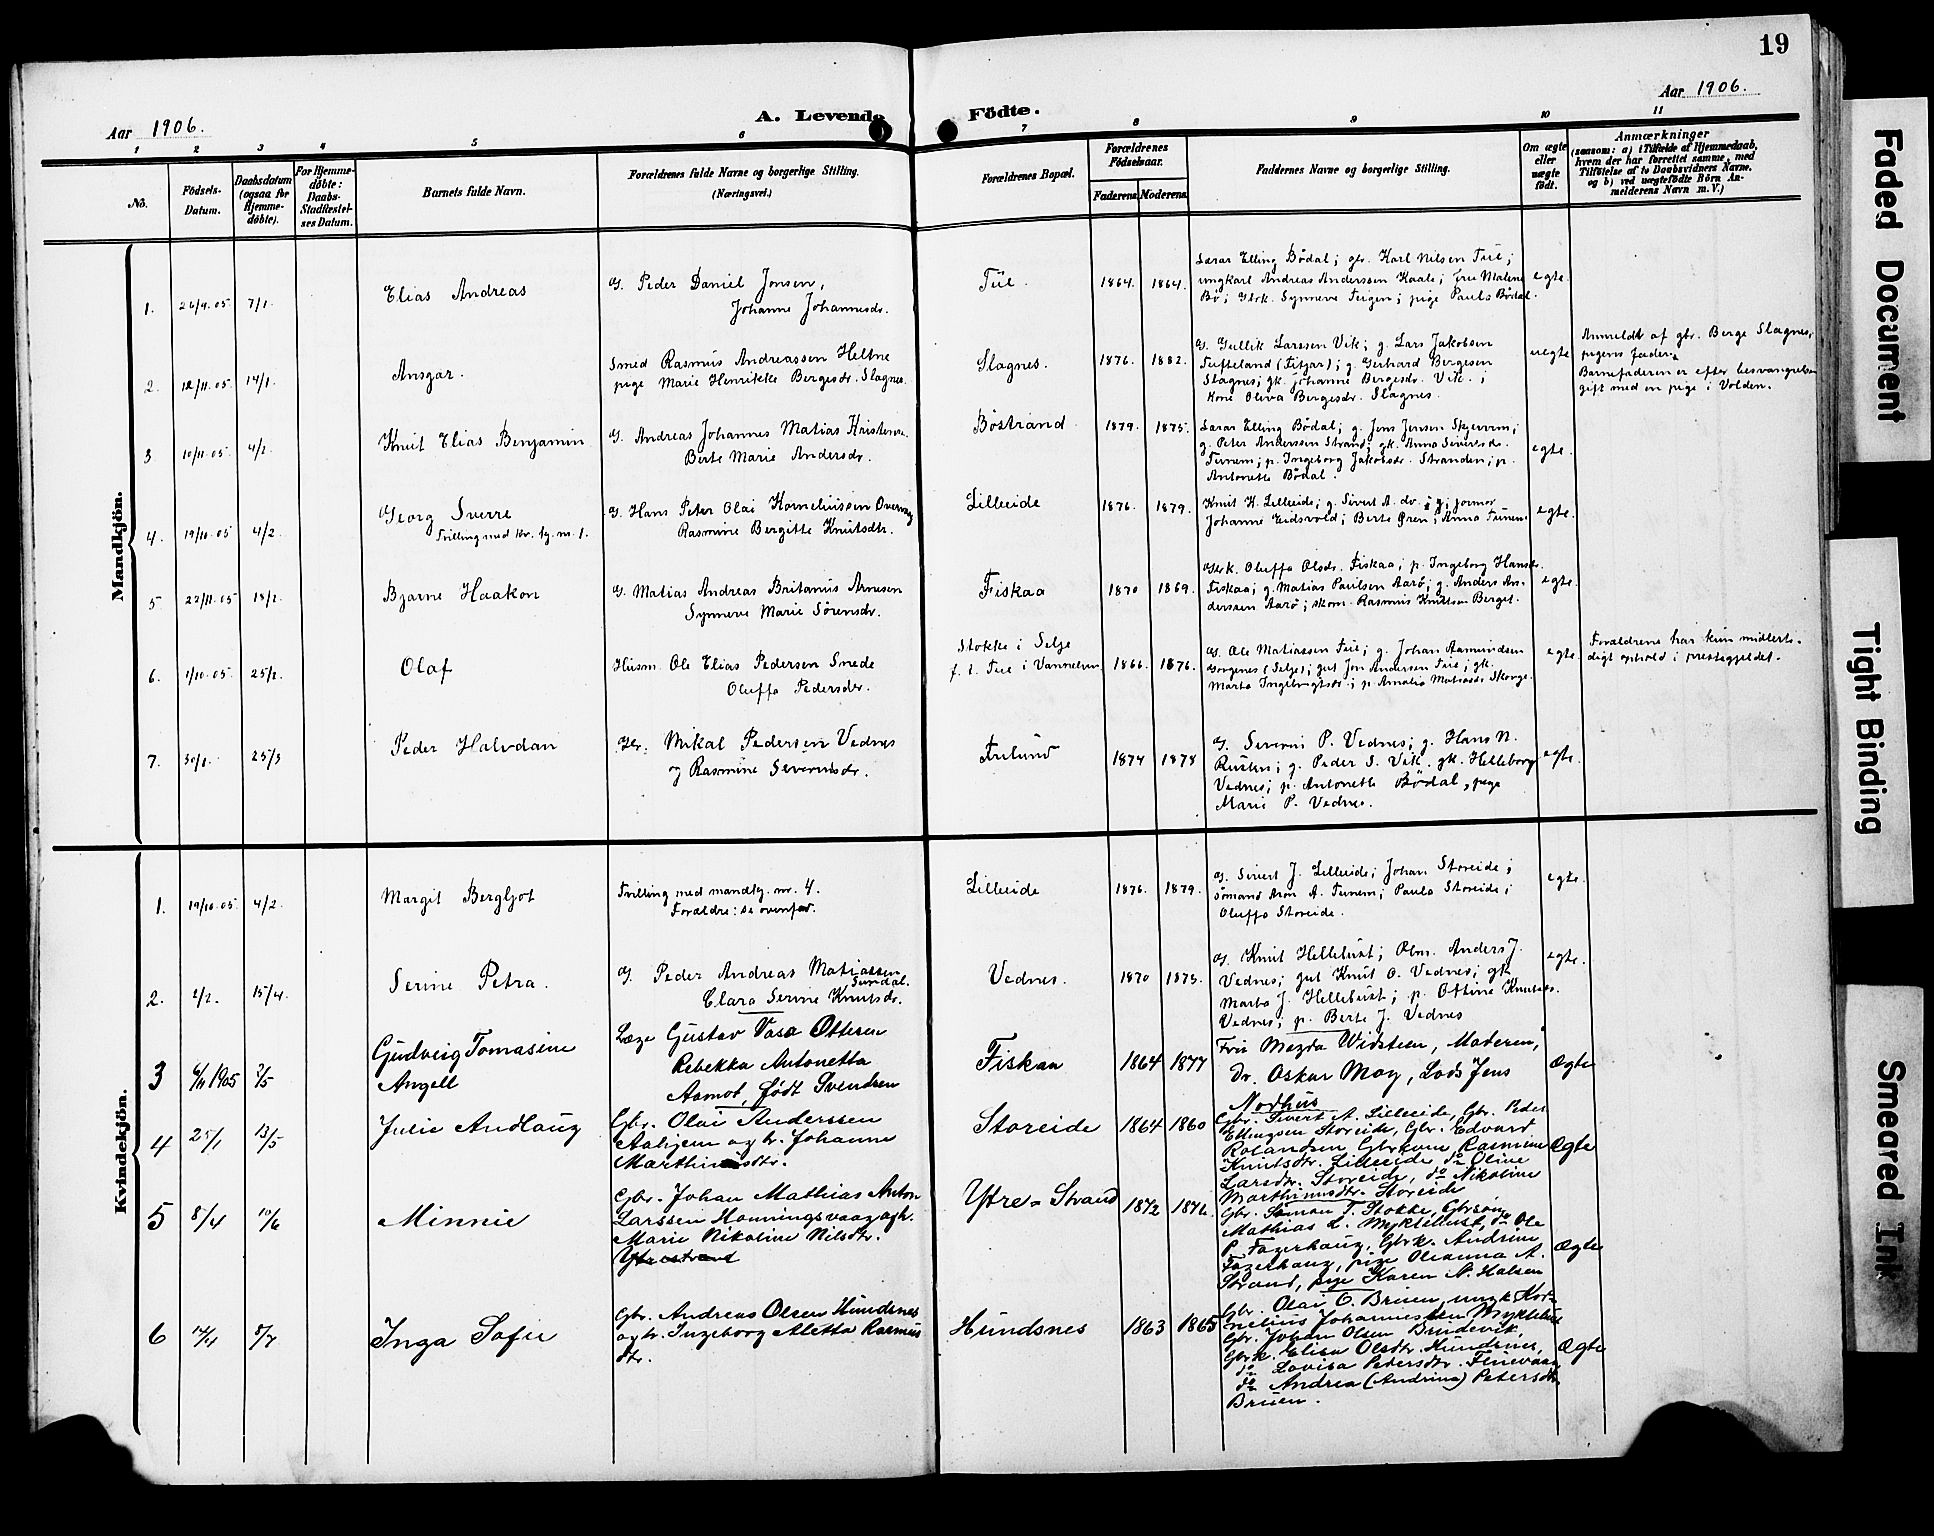 19
Aar 1906.
A. Levende Födte.
Aar 1906.
1 2 3 4 5 6 7 8 9 10 11
No.
Födsels-
Datum.
Daabsdatum
(ogsaa for
Hjemme-
döbte).
For Hjemme-
döbte:
Daabs-
Stadfæstel-
ses Datum.
Barnets fulde Navn.
Forældrenes fulde Navne og borgerlige Stilling.
(Næringsvei.)
Forældrenes Bopæl.
Forældrenes
Födselsaar.
Faderens Moderens
Faddernes Navne og borgerlige Stilling.
Om ægte
eller
uægte
født.
Anmærkninger
(saasom: a) i Tilfælde af Hjemmedaab,
hvem der har forrettet samme, med
Tilföielse af to Daabsvidners Navne,
og b) ved uægtefödte Börn An-
melderens Navn m. V.)
Mandkjön.
1. 26/9.05 7/1. Elias Andreas
G. Peder Daniel Jonsen,
Johanne Johannesdr.
Tue. 1864. 1864.
Lærar Elling Bödal; gbr. Karl Nilsen Tue;
ungkarl Andreas Anderssen Kaale; Malene
Bö; Synneve; pige Paula Bödal.
egte.
2. 12/11.05 14/1. Ansgar.
Smed Rasmus Andreassen Heltne
pige Marie Henrikke Bergesdr. Slagnes.
Slagnes. 1876. 1882.
G. Gullik Larssen Vik; g. Lars Jakobsen
Tufteland (Fitjar); g. Gerhard Bergesen
Slagnes; gk. Johanne Bergesdr. Vik.;
Kone Oliva Bergesdr. Slagnes.
uegte
Anmeldt af gbr. Berge Slagnes,
pigens fader.
Barnefaderen er efter besvangrelsen
gift med en pige i Volden.
3. 10/11.05 4/2. Knut Elias Benjamin
G. Andreas Johannes Matias Kristensen
Berte Marie Andersdr.
Böstrand 1879. 1875.
Lærar Elling Bödal; g. Jens Jensen
g. Peter Anderssen Strand; gk. Anna Siversdr.
p. Ingeborg Jakobsdr. Stranden; p.
Antonette Bödal.
egte.
4. 19/10.05 4/2. Georg Sverre
Tvilling med kv. kj. nr. 1.
G. Hans Peter Olai Korneliussen
Rasmine Bergitte Knutsdtr.
Lilleeide 1876. 1879.
Knut K. Lilleeide; g. Sivert A. do.
Johanne Eidsvold; Berte Ören; Anna
egte.
5. 22/11.05 18/2. Bjarne Haakon
G. Matias Andreas Britanus Arnesen
Synneve Marie Sörensdr.
Fiskaa 1870 1869.
Gbrk. Oluffa Olsdr. Fiskaa; p. Ingeborg Hansdr.
Fiskaa; g. Matias Paulsen Aarö; g. Anders An-
derssen Aarö; skom. Rasmus Knutsen Berget.
egte.
6. 1/10.05 25/2. Olaf
Husm. Ole Elias Pedersen Snede
Oluffa Pedersdr.
Stokke i Selje
f. t. Tue i Vannelven 1866. 1876.
G. Ole Matiassen Tue; g. Johan Aamundsen
(Selje); gut Jon Andersen Tue; gk.
Marta Ingebrigtsdr.; p. Amalia Matiasdr.
egte.
Forældrene har kun midlerti-
digt ophold i prestegjeldet.
7. 30/1. 25/3 Peder Halvdan
Gbr. Mikal Pedersen Vednes
og Rasmine Severinsdr.
1874 1878
G. Severin P. Vednes; g. Hans N.
Rusten; g. Peder S. Vik. gk. Helleborg
Vednes; p. Antonette Bödal, pige
Marie P. Vednes.
egte.
Kvindekjön.
1. 19/10.05. 4/2. Margit Bergljot
Tvilling med mandkj. nr. 4.
Forældre: se ovenfor.
Lilleeide 1876. 1879.
G. Sivert J. Lilleeide; Johan Storeide;
sömand Aron A.; Paula Storeide;
Oluffa Storeide.
egte.
2. 2/2. 15/4. Serine Petra.
G. Peder Andreas Matiassen
Sundal.
Clara Serine Knutsdr.
Vednes. 1870 1873.
G. Knut Hellebust; Anders J.
Vednes; gut Knut O. Vednes; gk
Marta J. Hellebust; p. Ottine Knutsdr.
Vednes; p. Berte J. Vednes
egte.
3 6/11 1905 2/5 Gudveig Tomasine
Angell
Læge Gustav Vasa Ottesen
Rebekka Antonetta
Aamot, født Svendsen
Fiskaa 1864 1877
Fru Magda Widsteen, Moderen,
Dr. Oskar Moy, Lods Jens
Nodhus
Ægte
4 25/1 13/5 Julie Andlaug
Gbr. Olai Anderssen
Aahjem og h. Johanne
Marthinusdtr.
Storeide 1864 1860
Gbr. Sivert A. Lilleeide, Gbr. Peder
Ellingsen Storeide, Gbr. Edvard
Rolandsen Gbrkone Rasmine
Knutsdtr. Lilleeide do Oline
Larsdtr. Storeide, do Nikoline
Marthinusdtr. Storeide
Ægte
5 8/4 10/6 Minnie
Gbr. Johan Mathias Anton
Larssen Honningsvaag og h.
Marie Nikoline Nilsdtr.
Ytrestrand
Ytre-Strand 1872 1876.
Gbr. Simon T. Stokke, Gbrsøn
Mathias L. Myklebust, do Ole
P. Fagerhaug, Gbrk. Andrine
Fagerhaug, pige Oleanna A.
Strand, pige Karen N. Halsen
Ægte
6 14/1 8/7 Inga Sofie
Gbr. Andreas Olsen Hundsnes
og h. Ingeborg Aletta Rasmus
dtr.
Hundsnes 1863 1865
Gbr. Olai O. Bruen, ungk Kor-
nelius Johannessen Myklebust
Gbr. Johan Olsen Brudevik,
Gbrk. Elisa Olsdtr. Hundsnes,
do Lovisa Pedersdtr.
do Andrea (Andrina) Petersdtr.
Bruen.
Ægte
Faded Document
Tight Binding
Smeared Ink